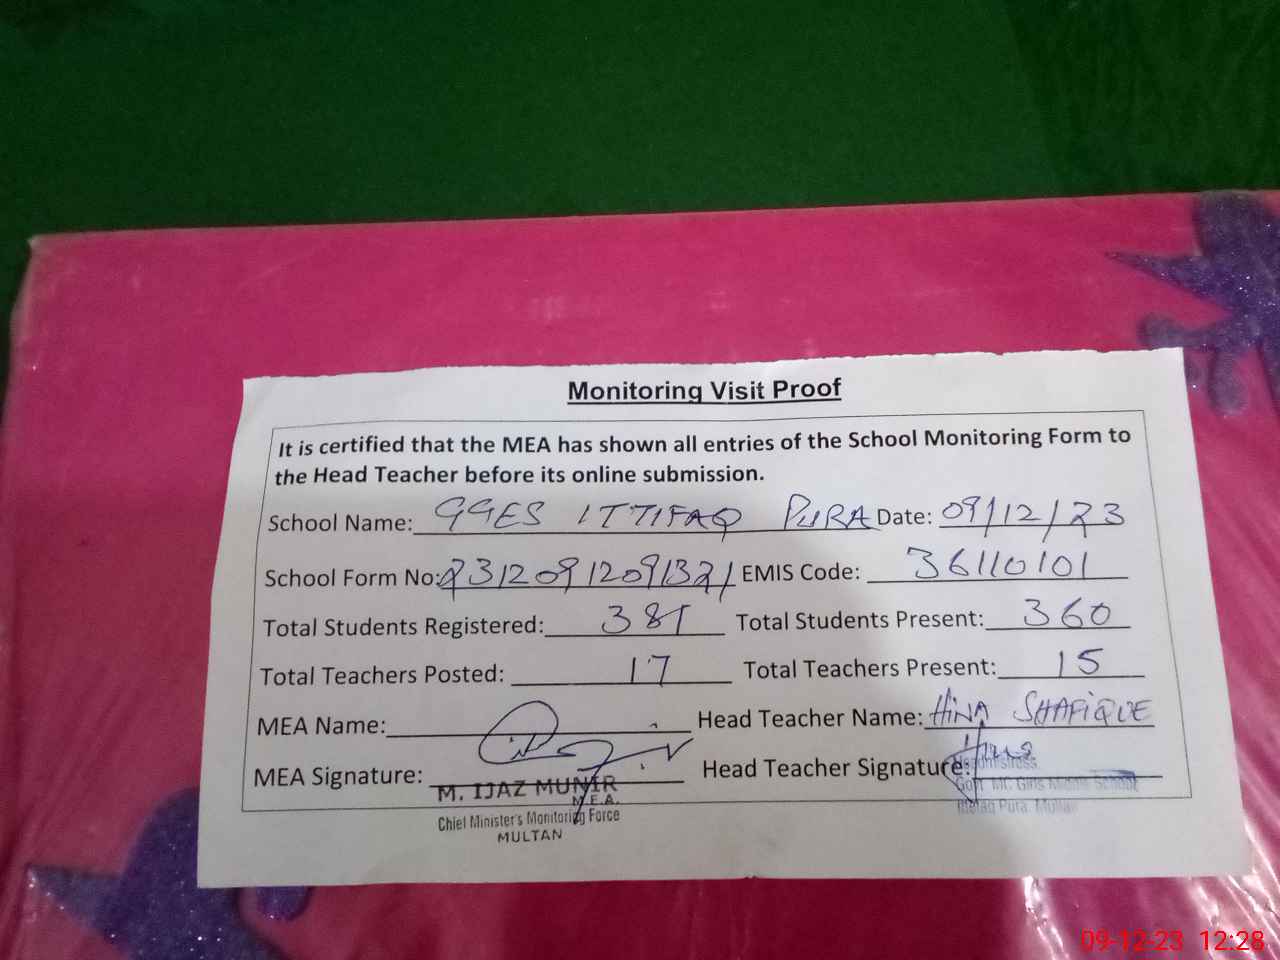 Monitoring Visit Proof
It is certified that the MEA has shown all entries of the School Monitoring Form to
the Head Teacher before its online submission.
School Name: GGES ITTIFAQ PURA Date: 09/12/23
School Form No: 23120912091321 EMIS Code: 36110101
Total Students Registered: 381 Total Students Present: 360
Total Teachers Posted: 17 Total Teachers Present: 15
MEA Name: Head Teacher Name: HINA SHAFIQUE
MEA Signature: Head Teacher Signature:
M. IJAZ MUNIR
M.E.A.
Chief Minister's Monitoring Force
MULTAN
Headmistress
Govt. MC. Girls Middle School
Pura. Multan
09-12-23 12:28